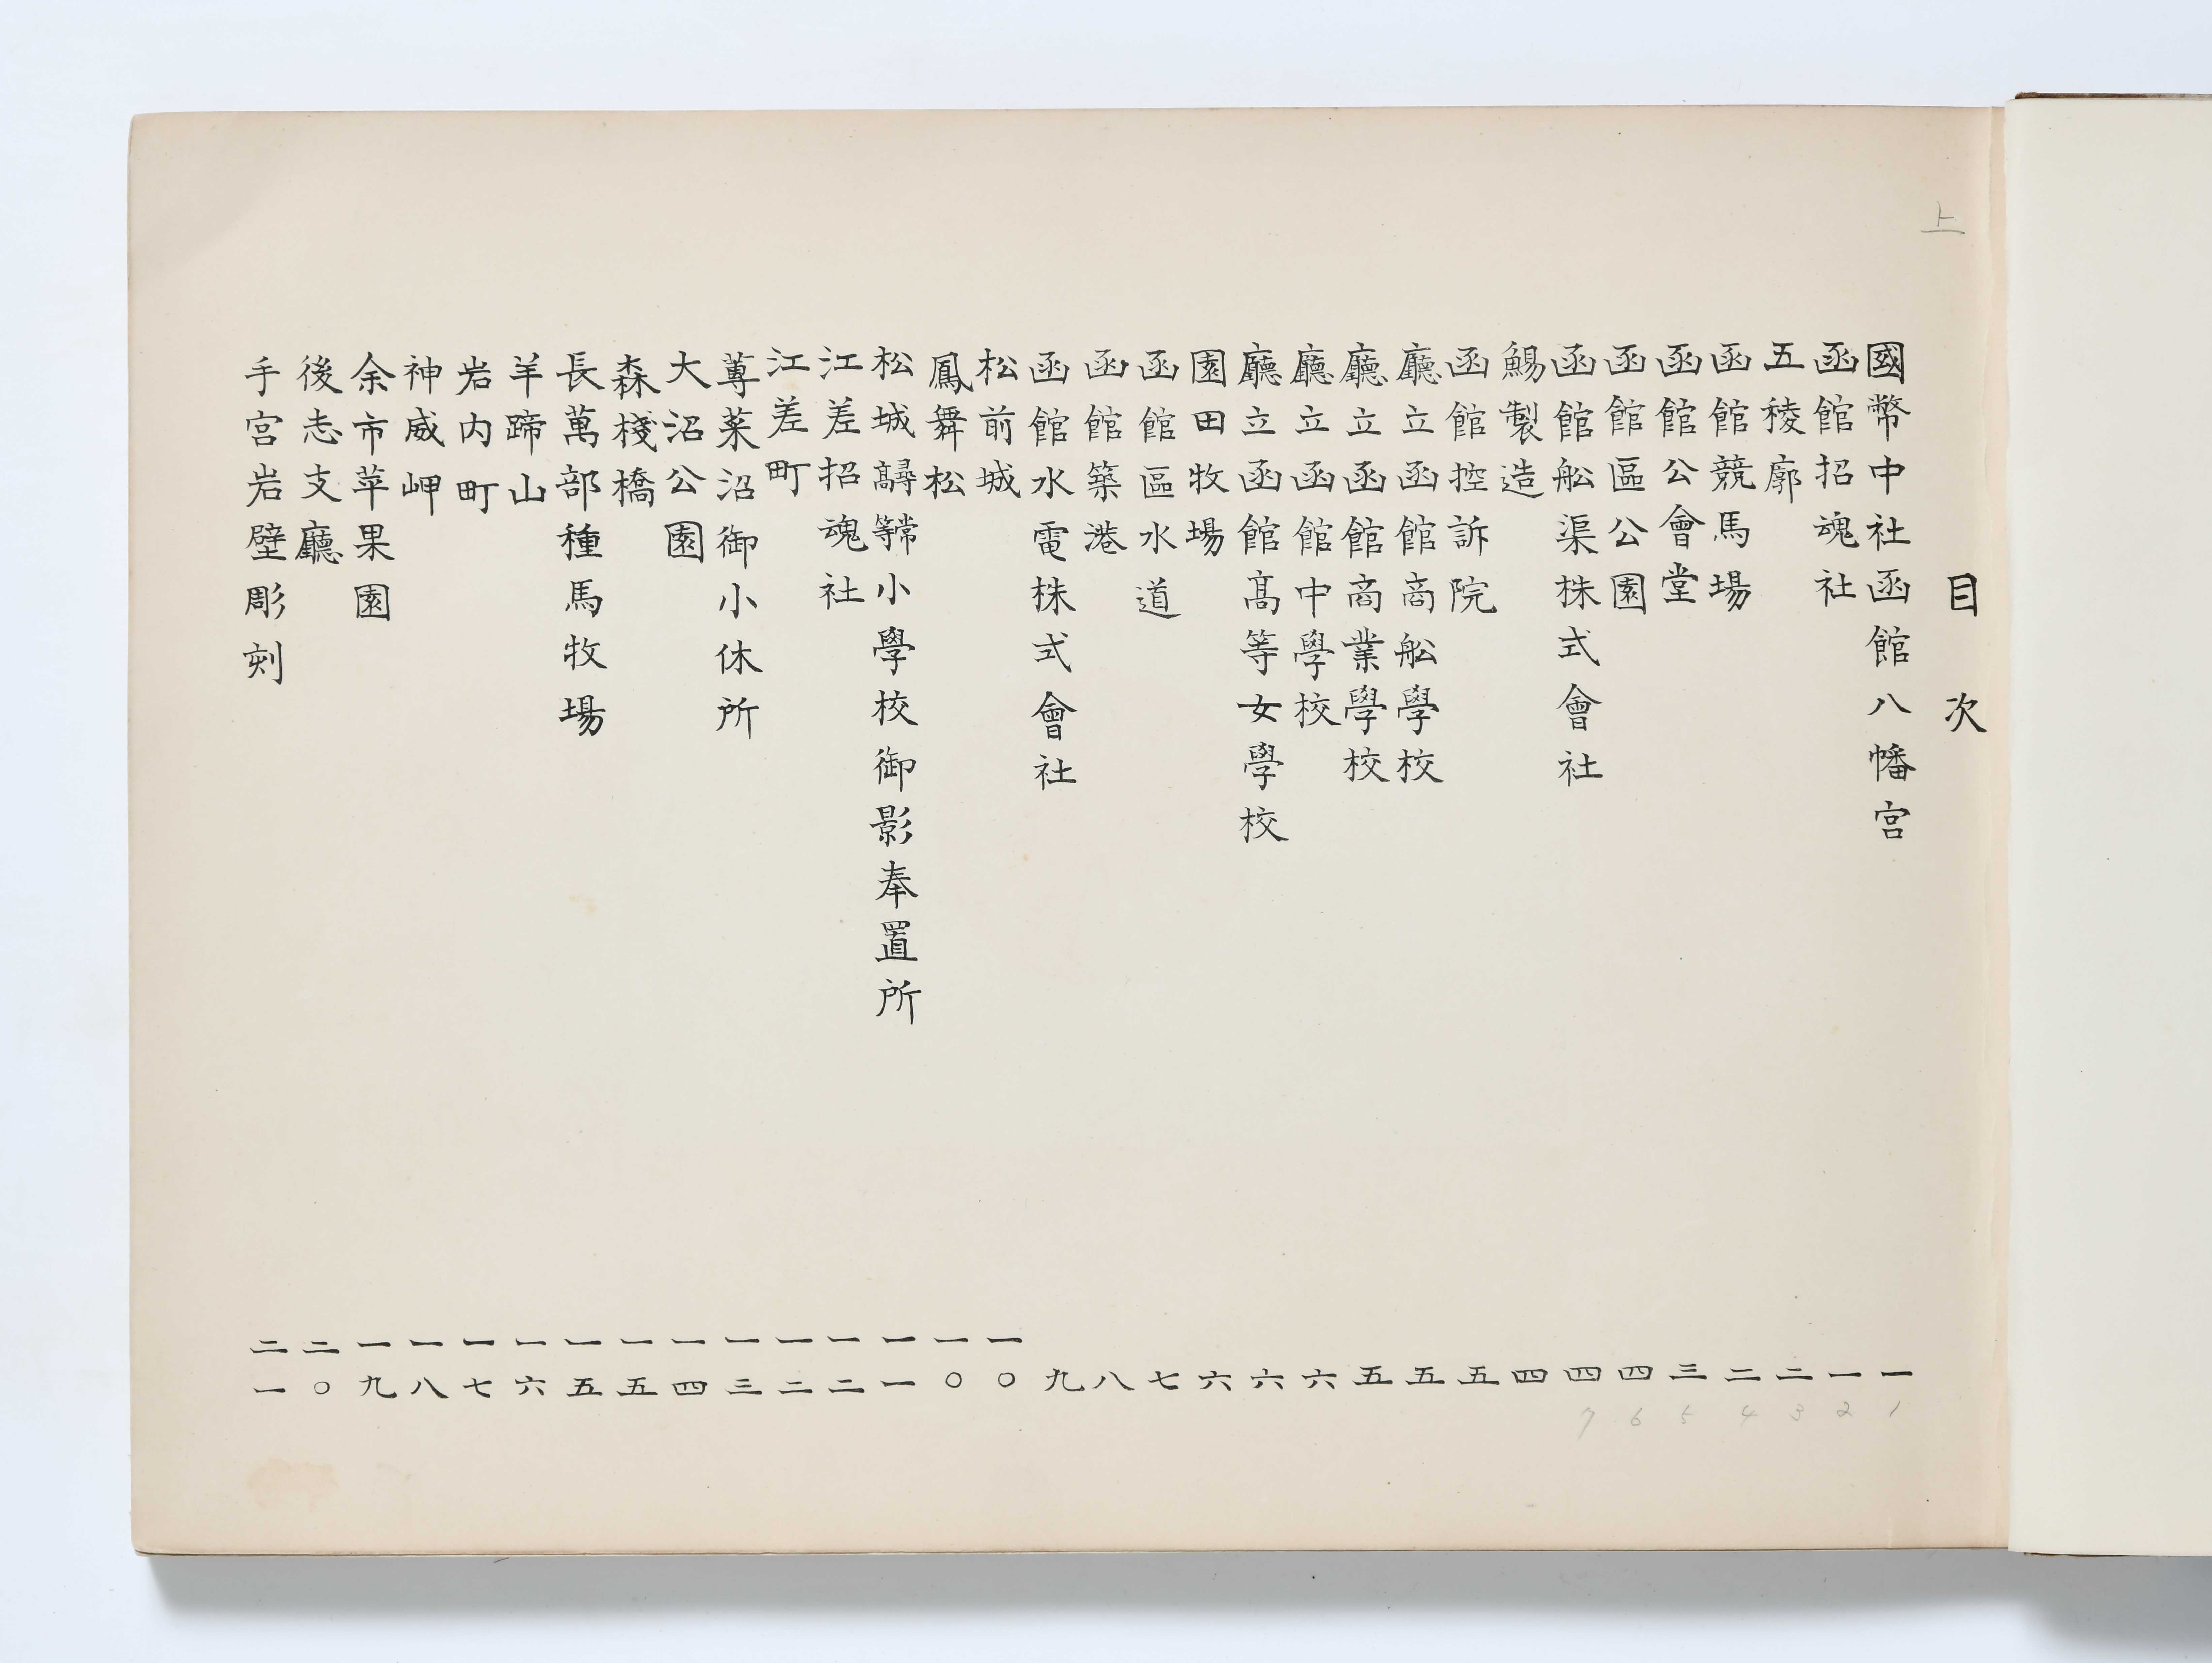 上
目次
國幣中社函館八幡宮 一 1
函館招魂社 一 2
五稜廓 二 3
函館競馬場 二 4
函館公會堂 三 5
函館區公園 四 6
函館舩渠株式會社 四 7
鯣製造 四
函館控訴院 五
廳立函館商舩學校 五
廳立函館商業學校 五
廳立函館中學校 六
廳立函館髙等女學校 六
園田牧場 六
函館區水道 七
函館築港 八
函館水電株式會社 九
松前城 一〇
鳳舞松 一〇
松城尋常髙等小學校御影奉置所 一一
江差招魂社 一二
江差町 一二
蓴菜沼御小休所 一三
大沼公園 一四
森棧橋 一五
長萬部種馬牧場 一五
羊蹄山 一六
岩内町 一七
神威岬 一八
余市苹果園 一九
後志支廳 二〇
手宮岩壁彫刻 二一